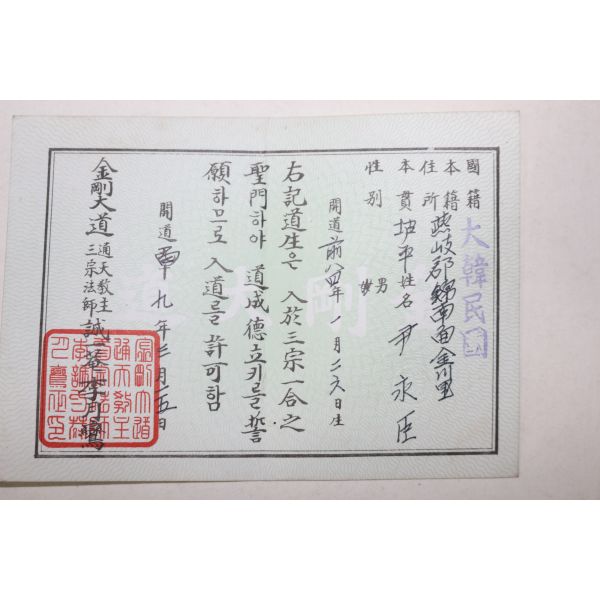 國籍 大韓民國
本籍
住所 燕岐郡錦南面金川里
本貫 坡平 姓名 尹永臣
性別 男
開道前八四年一月二六日生
右記道生은 入於三宗一合之
聖門하야 道成德立키를 誓
願하므로 入道를 許可함
開道 九年三月一五日
金剛大道 通天敎主 三宗法師 誠 李月鸞
金剛大道